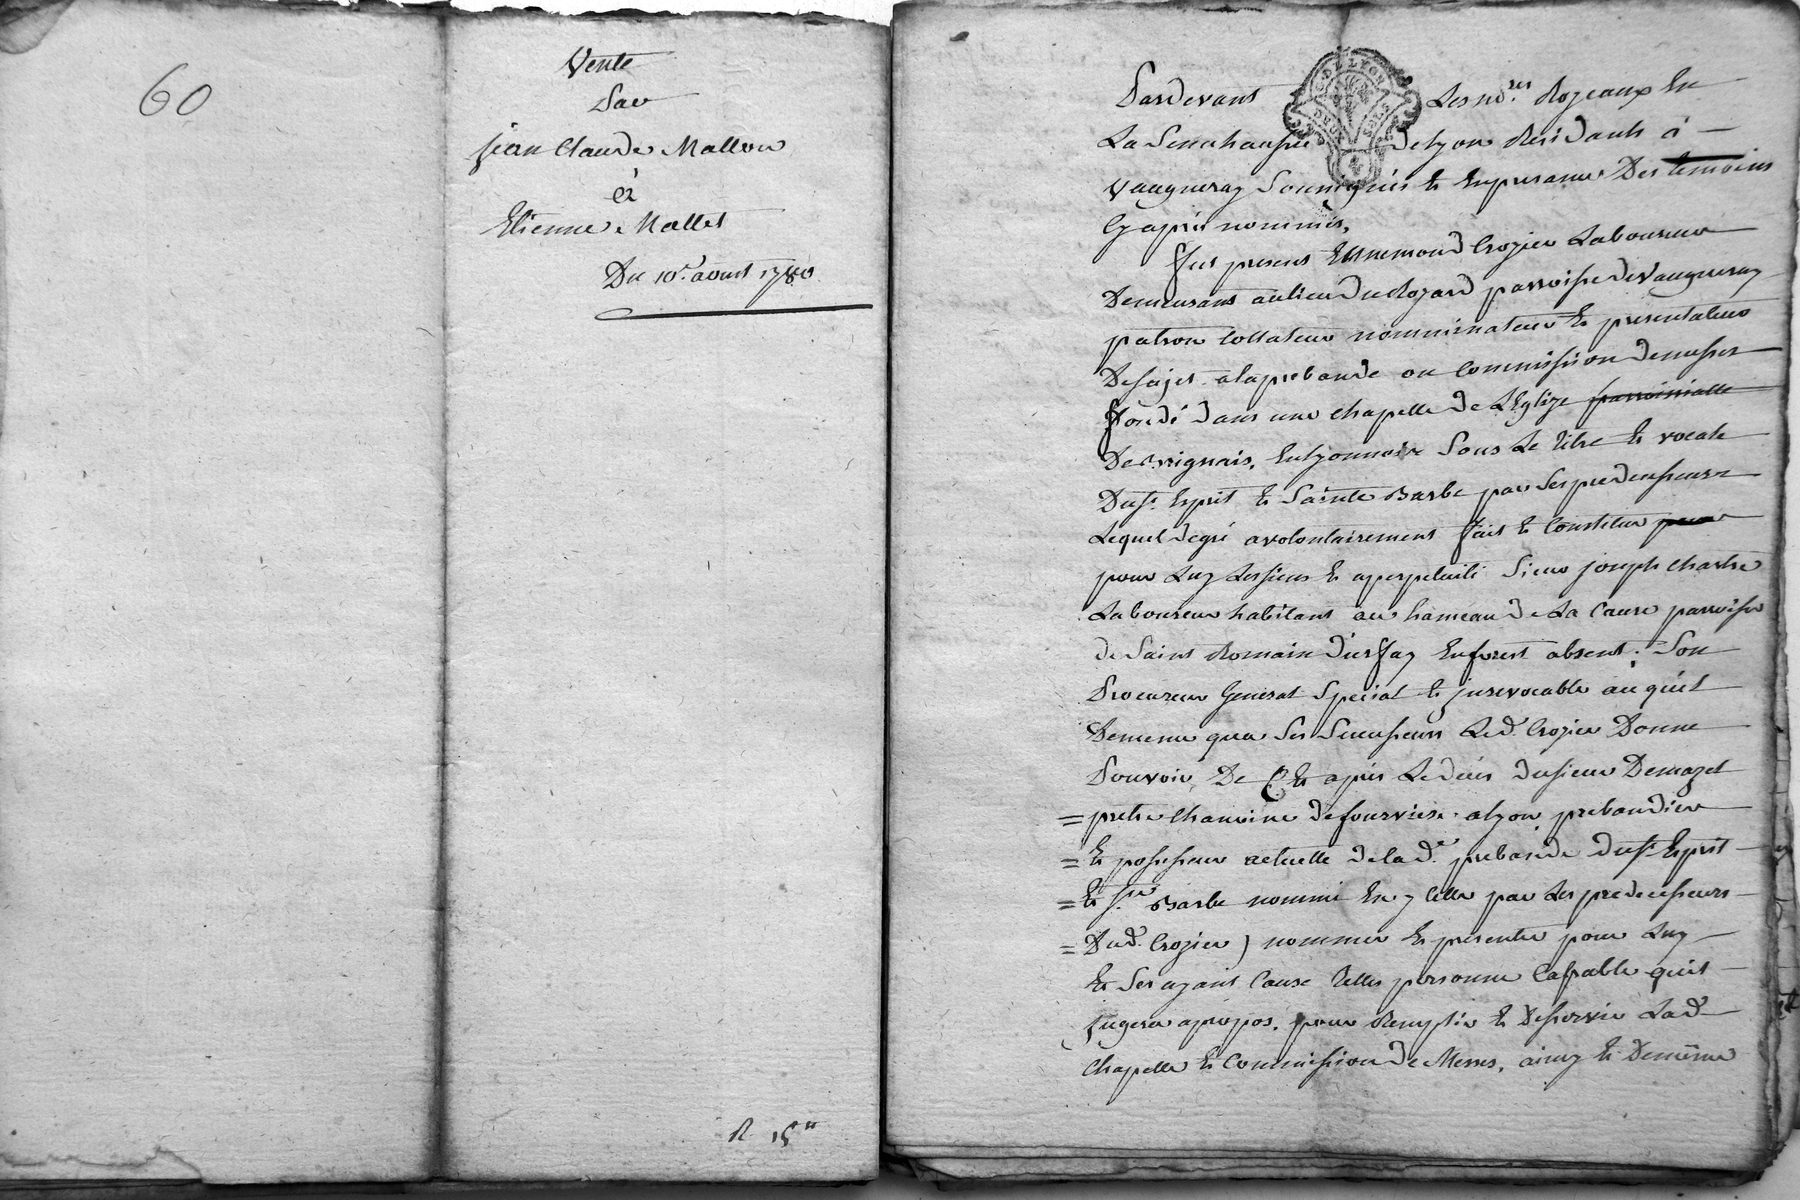 60
Vente
Par
jean Claude Mallon
à
Etienne Mallet
Du 10.e aoust 1780
R 15"
Pardevant Les nd.res Royeaux En
La Senechaussée de Lyon Residants à
Vaugneray Soussignés Et En presance Des temoins
Cy après nommés,
Fut present Ennemond Crozier Laboureur
Demeurant au lieu Du Rozard parroisse de Vaugneray
patron Collateur nomminateur Et presentateur
De sujet a la prebande ou Commission de messes
fondé dans une chapelle de L'Eglize parroissialle
Enlyonnois Sous Le titre Et vocale
Du St Esprit Et Sainte Barbe par Ses predecesseurs
Lequel de gré a volontairement fait Et Constitué pour
pour Luy Les siens Et a perpetuité Sieur joseph Chartre
Laboureur habitant au hameau de La Caure parroisse
de Saint Romain d'urfay En forest absent, Son
Procureur General Special Et jrrevocable au quel
De meme qu'a Ses Successeurs Led. Crozier Donne
Pouvoir De (Et après Le deces du sieur Demazet
= pretre Chanoine de fourviere a Lyon prebandier
= Et possesseur actuelle de la de. prebande du St Esprit
= Et Ste Barbe nommé En y celle par Les predecesseurs
= Dud. Crozier) nommer Et presenter pour Luy
Et Ses ayant Cause telle personne Capable qu'il
jugera apropos, pour Remplir Et Desservir Lad.
Chapelle Et Commission de Messes, ainsy Et De même